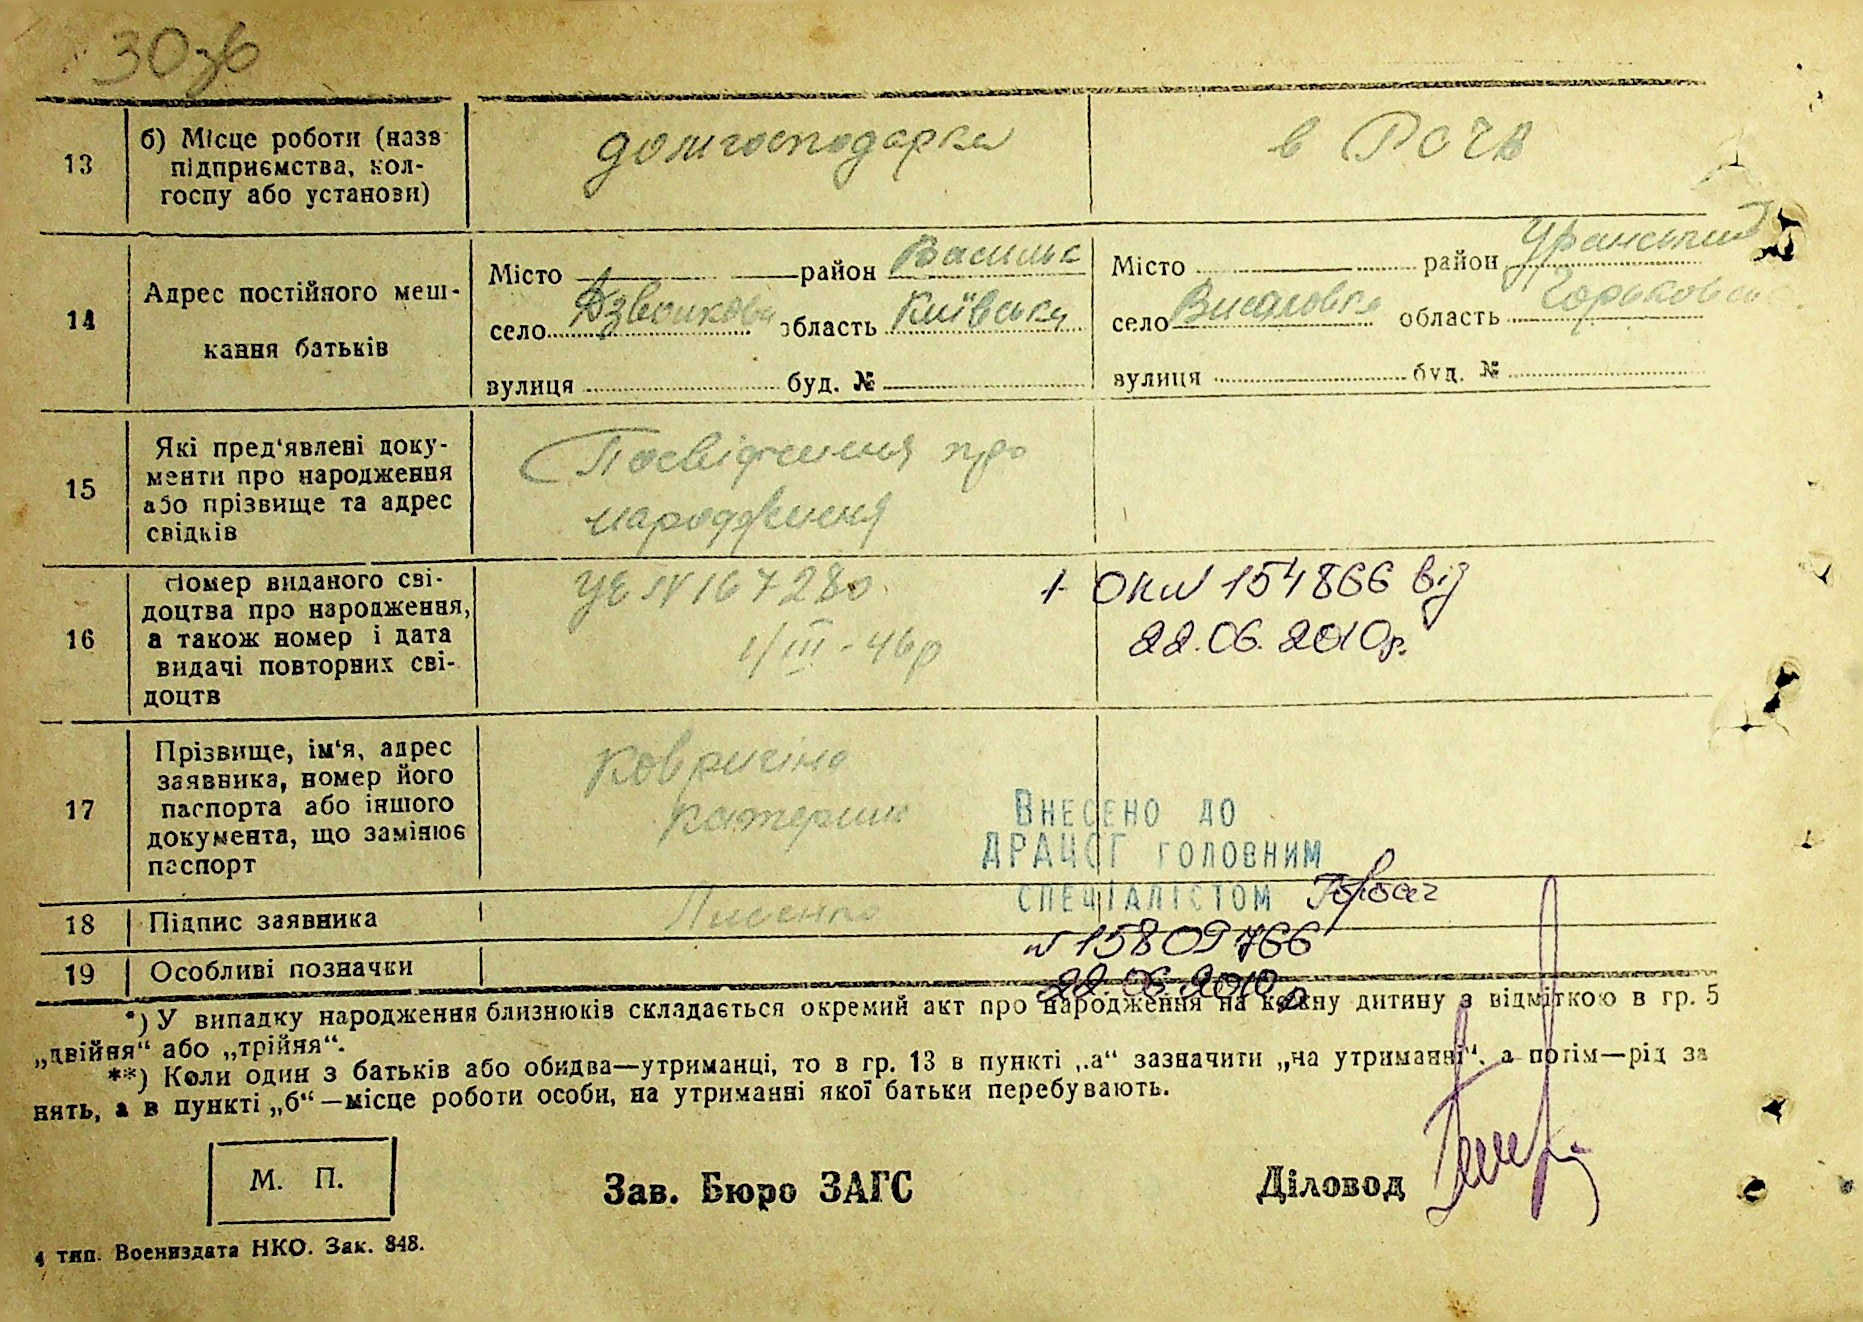 30зв
13 б) Місце роботи (назв підприємства, колгоспу або установи) домгосподарка в РСЧА
14 Адрес постійного мешкання батьків
Місто район Васильк Місто район Уранський
село Дзвонкова область Київська село область Горьковська
вулиця буд. № вулиця буд. №
15 Які пред'явлені доку-
менти про народження
або прізвище та адрес
свідків
Посвідчення про
народження
16 Номер виданого сві-
доцтва про народження,
а також номер і дата
видачі повторних сві-
доцтв
УЕ N 167280
1/III-46р
1-ОК N 154866 від
22.06.2010р.
17 Прізвище, ім'я, адрес
заявника, номер його
паспорта або іншого
документа, що замінює
паспорт
Ковригіна
Катерина
Внесено до
ДРАЦСГ головним
спеціалістом
18 Підпис заявника Лисенко
N 15809766
19 Особливі позначки
22.06.2010р
*) У випадку народження близнюків складається окремий акт про народження на кожну дитину з відміткою в гр. 5
„двійня“ або „трійня“.
**) Коли один з батьків або обидва—утриманці, то в гр. 13 в пункті „а“ зазначити „на утриманні“, а потім—рід за
нять, а в пункті „б“—місце роботи особи, на утриманні якої батьки перебувають.
М. П.
Зав. Бюро ЗАГС Діловод
4 тип. Воениздата НКО. Зак. 848.